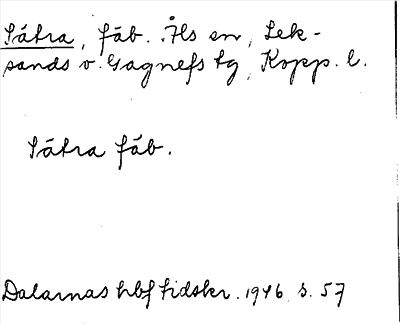 Sätra, fäb. Åls sn, Lek-
sands o. Gagnefs tg, Kopp. l.
Sätra fäb.
Dalarnas hbf tidskr. 1946 s. 57